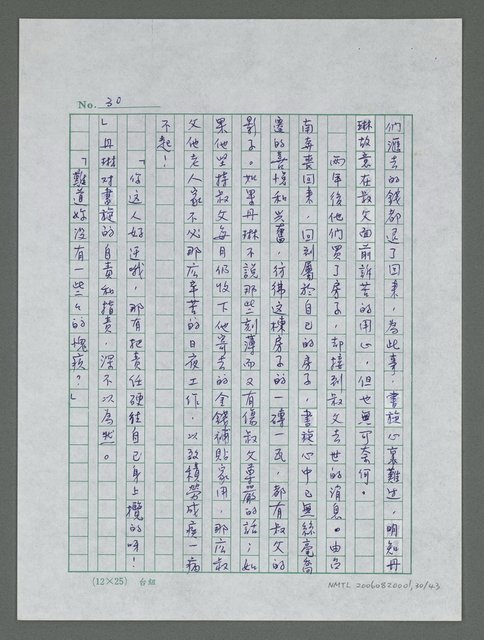 No. 30
們滙去的錢都退了回來，為此事，書旋心裏難過，明知丹
琳故意在叔父面前訴苦的用心，但也無可奈何。
兩年後他們買了房子，却接到叔父去世的消息。由台
南奔喪回來，回到屬於自己的房子，書旋心中已無絲毫喬
遷的喜悅和興奮，彷彿這棟房子的一磚一瓦，都有叔父的
影子。如果丹琳不說那些刻薄而又有傷叔父尊嚴的話；如
果他堅持叔父每月仍收下他寄去的金錢補貼家用，那麼叔
父他老人家不必那麼辛苦的日夜工作，以致積勞成疾一病
不起！
「你這人好迂哦，那有把責任硬往自己身上攬的呀！
」丹琳對書旋的自責和指責，深不以為然。
「難道妳沒有一些些的愧疚？」
(12×25) 台組
NMTL 20060820001, 30/43